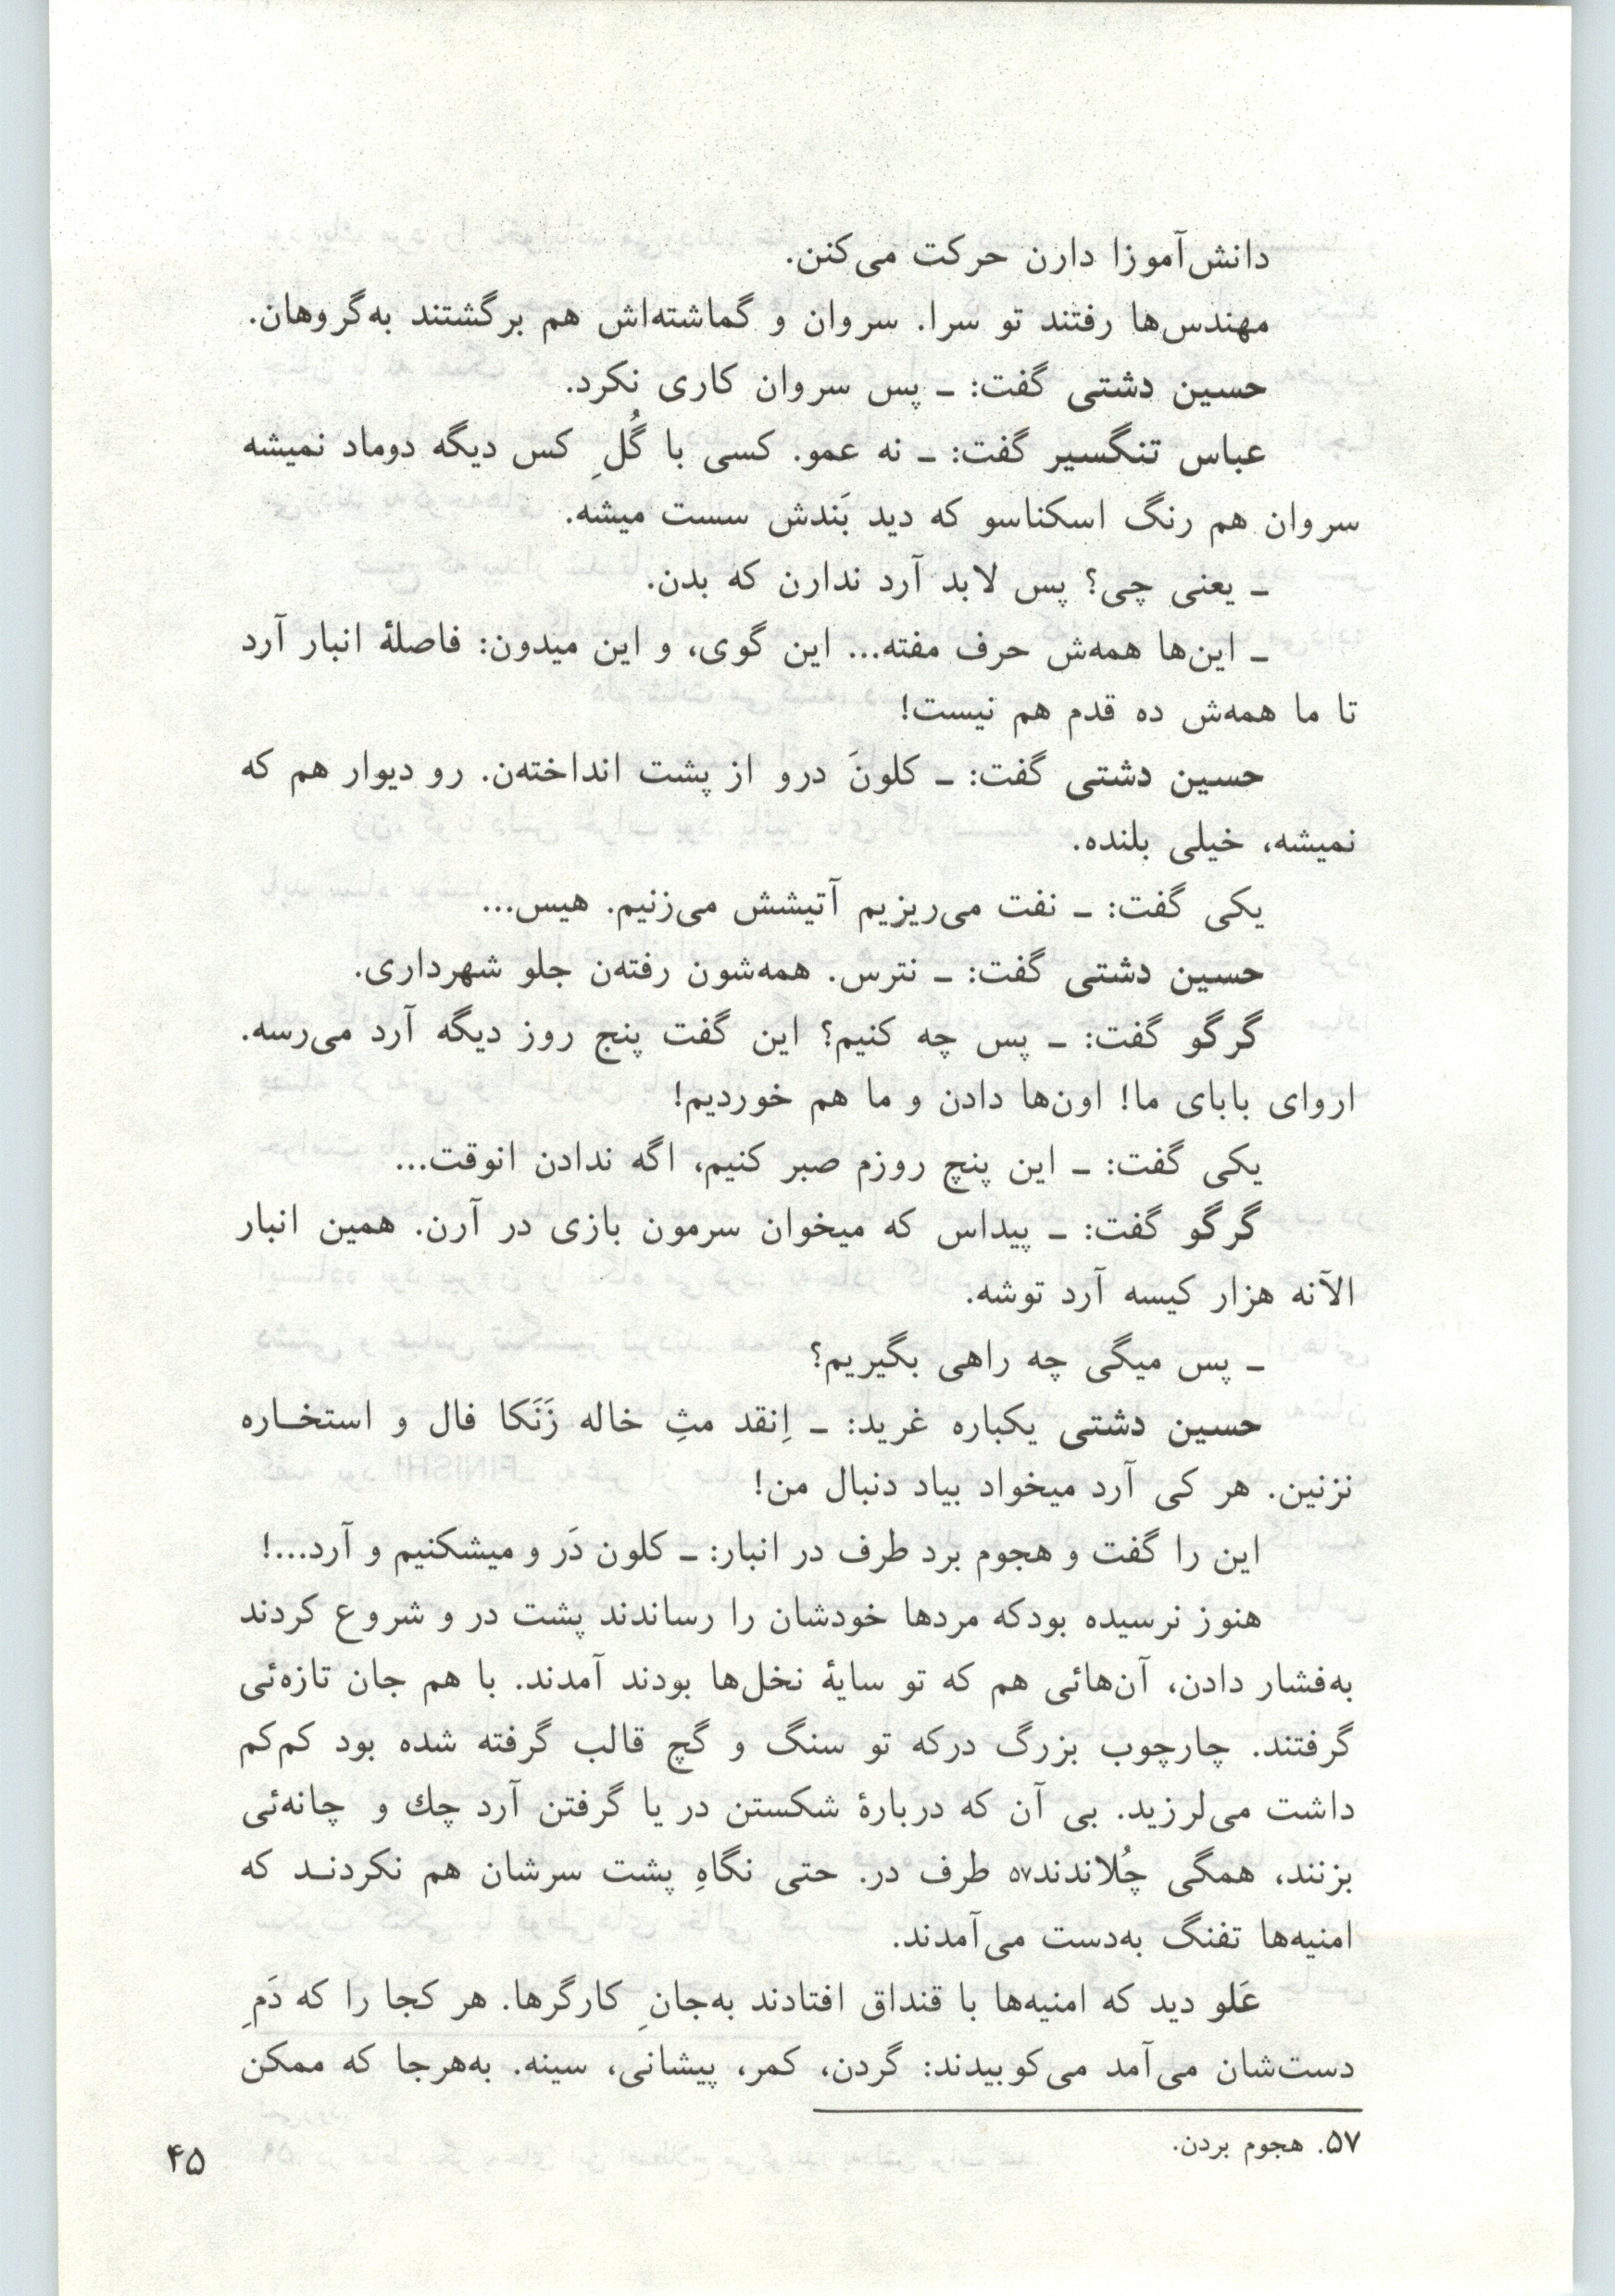 دانش‌آموزا دارن حرکت می‌کنن.
مهندس‌ها رفتند تو سرا. سروان و گماشته‌اش هم برگشتند به‌گروهان.
حسین دشتی گفت: ـ پس سروان کاری نکرد.
عباس تنگسیر گفت: ـ نه عمو. کسی با گُلِ کس دیگه دوماد نمیشه
سروان هم رنگ اسکناسو که دید بَندش سست میشه.
ـ یعنی چی؟ پس لابد آرد ندارن که بدن.
ـ این‌ها همه‌ش حرف مفته... این گوی، و این میدون: فاصلهٔ انبار آرد
تا ما همه‌ش ده قدم هم نیست!
حسین دشتی گفت: ـ کلونَ درو از پشت انداخته‌ن. رو دیوار هم که
نمیشه، خیلی بلنده.
یکی گفت: ـ نفت می‌ریزیم آتیشش می‌زنیم. هیس...
حسین دشتی گفت: ـ نترس. همه‌شون رفته‌ن جلو شهرداری.
گرگو گفت: ـ پس چه کنیم؟ این گفت پنج روز دیگه آرد می‌رسه.
اروای بابای ما! اون‌ها دادن و ما هم خوردیم!
یکی گفت: ـ این پنچ روزم صبر کنیم، اگه ندادن انوقت...
گرگو گفت: ـ پیداس که میخوان سرمون بازی در آرن. همین انبار
الآنه هزار کیسه آرد توشه.
ـ پس میگی چه راهی بگیریم؟
حسین دشتی یکباره غرید: ـ اِنقد مثِ خاله زَنَکا فال و استخـاره
نزنین. هر کی آرد میخواد بیاد دنبال من!
این را گفت و هجوم برد طرف در انبار: ـ کلون دَر و میشکنیم و آرد...!
هنوز نرسیده بودکه مردها خودشان را رساندند پشت در و شروع کردند
به‌فشار دادن، آن‌هائی هم که تو سایهٔ نخل‌ها بودند آمدند. با هم جان تازه‌ئی
گرفتند. چارچوب بزرگ درکه تو سنگ و گچ قالب گرفته شده بود کم‌کم
داشت می‌لرزید. بی آن که دربارهٔ شکستن در یا گرفتن آرد چك و چانه‌ئی
بزنند، همگی چُلاندند۵۷ طرف در. حتی نگاهِ پشت سرشان هم نکردنـد که
امنیه‌ها تفنگ به‌دست می‌آمدند.
عَلو دید که امنیه‌ها با قنداق افتادند به‌جانِ کارگرها. هر کجا را که دَمِ
دست‌شان می‌آمد می‌کوبیدند: گردن، کمر، پیشانی، سینه. به‌هرجا که ممکن
۵۷. هجوم بردن.
۴۵